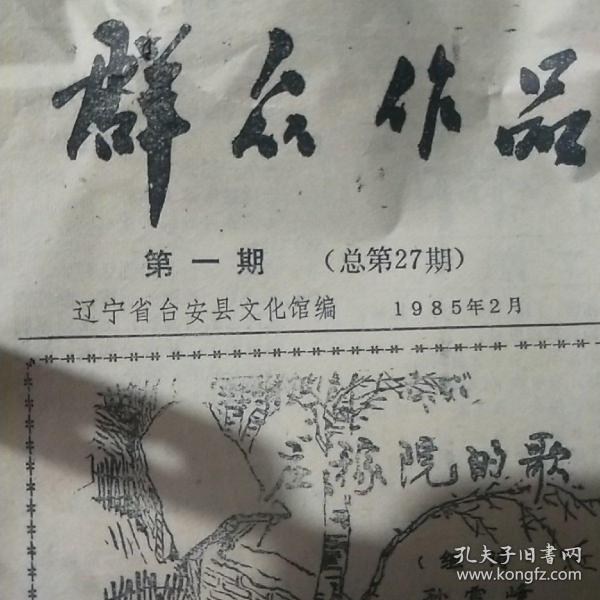 群众作品
第一期 （总第27期）
辽宁省台安县文化馆编 1985年2月
庄稼院的歌
（组
孔夫子旧书网
www.kongfz.com